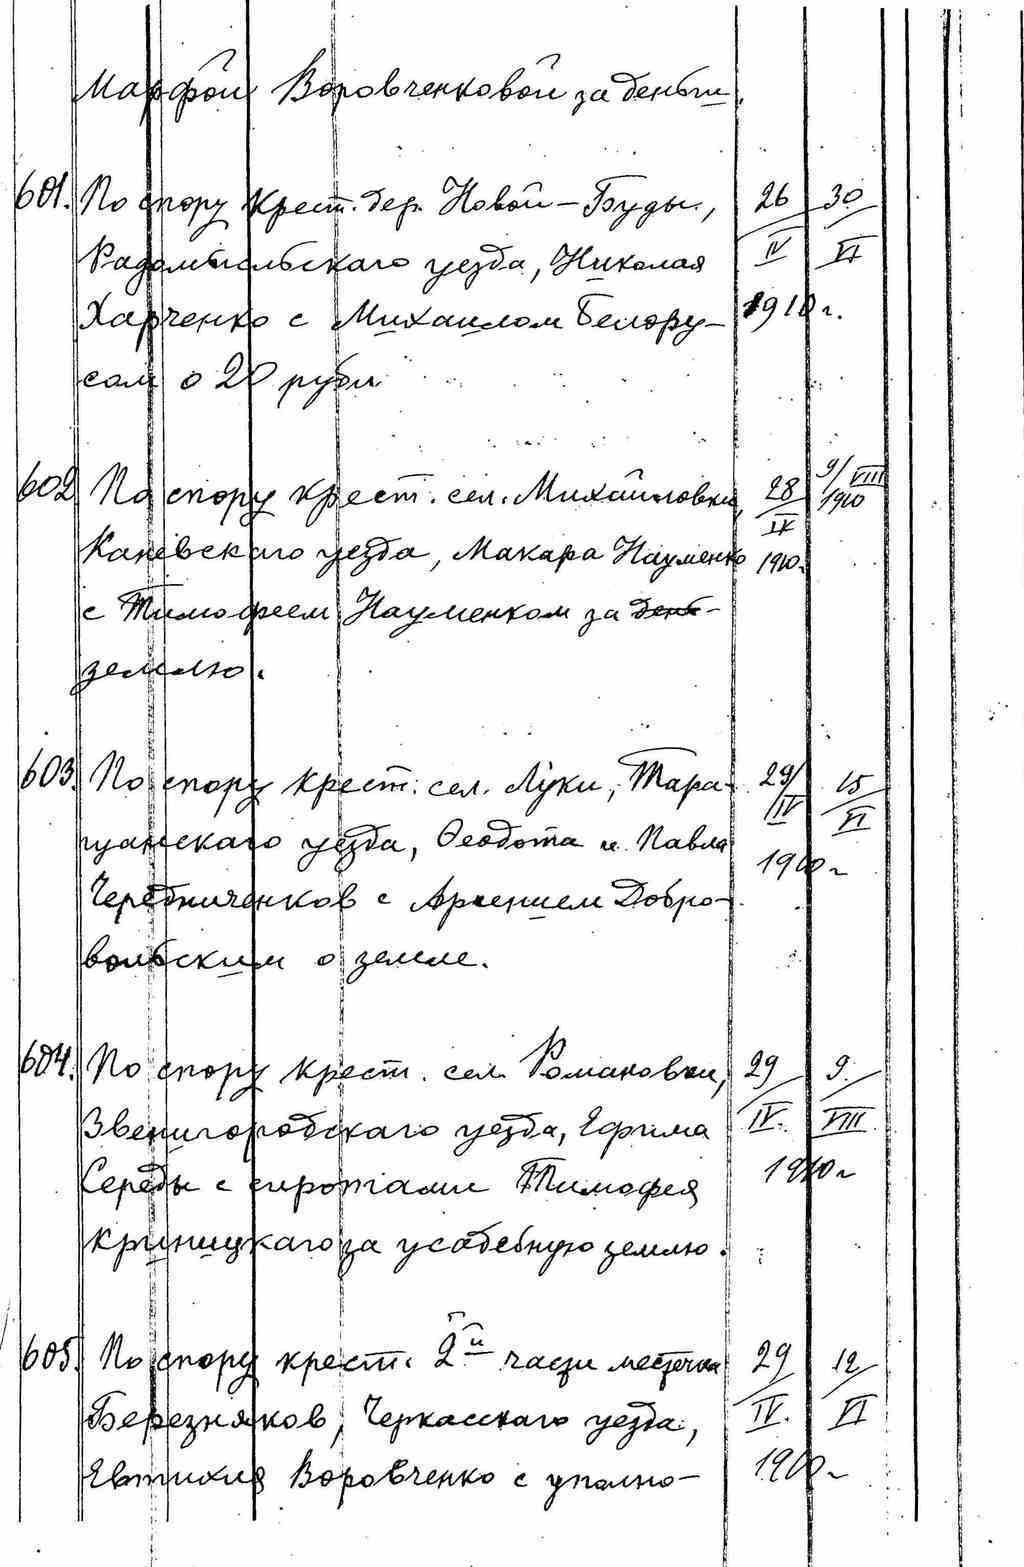 Марфой Воровченковой за деньги.
601. По спору крест. дер. Новой-Буды, 26/IV 30/VI
Радомысльского уезда, Николая
Харченко с Михаилом Белору- 1910 г.
сом о 20 рубл.
602 По спору крест. сел. Михайловки, 28/IV 9/VIII 1910
Каневскаго уезда, Макара Науменко 1910 г.
с Тимофеем Науменком за день-
землю.
603. По спору крест. сел. Луки, Тара- 29/IV 15/VI
щанскаго уезда, Феодота и Павла 1910 г
Чередниченков с Арсением Добро-
вольским о земле.
604. По спору крест. сел. Романовки, 29/IV. 9./VIII
Звенигородскаго уезда, Ефима
Середы с сиротами Тимофея 1910 г
Криницкаго за усадебную землю.
605. По спору крест. 2й части местечка 29/IV. 12/VI
Березняков, Черкасскаго уезда,
Евтихия Воровченко с уполно- 1910 г